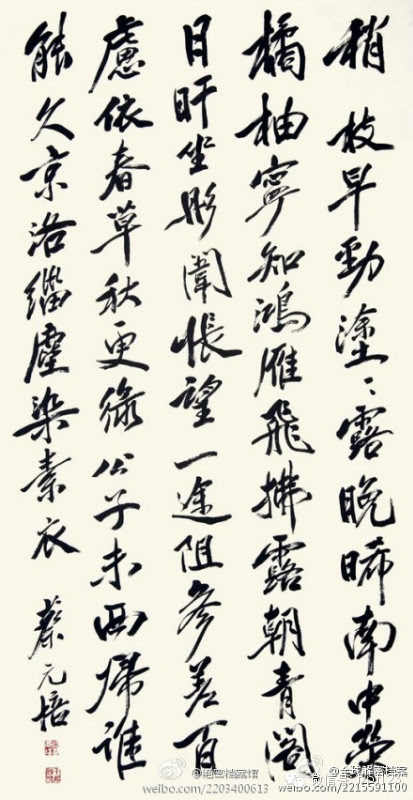 梢枝早勁塗〻露晚晞南中榮
橘柚寧知鴻雁飛拂露朝青閣
日旰坐彤闈悵望一途阻參差百
慮依春草秋更綠公子未西歸誰
能久京洛緇塵染素衣
蔡元培
@绝密档案馆
weibo.com/2203400613
weibo.com/2215591100